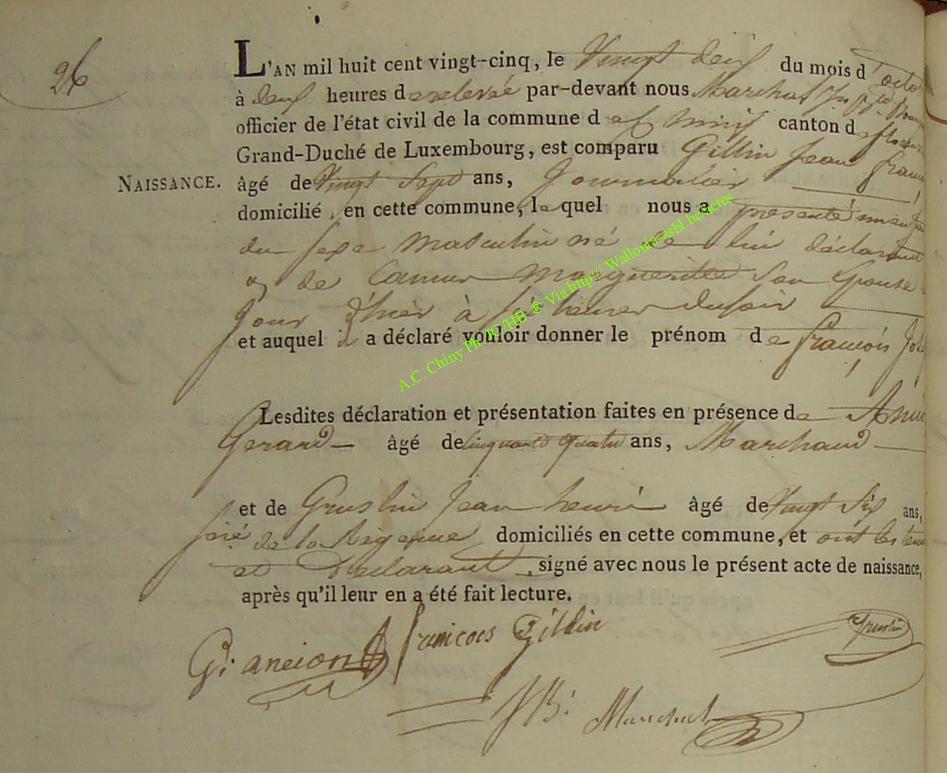 26
L'AN mil huit cent vingt-cinq, le Vingt deux du mois d'octo
à deux heures de relevée par-devant nous Marchal
officier de l'état civil de la commune d canton de
Grand-Duché de Luxembourg, est comparu Gillin Jean
NAISSANCE. âgé de Vingt Sept ans, Journalier
domicilié en cette commune, lequel nous a presenté un
du sexe masculin né de lui déclarant
& de Marguerite Son Epouse
Jour d'hier à heures du soir
et auquel il a déclaré vouloir donner le prénom de françois
Lesdites déclaration et présentation faites en présence de
Gerard âgé de Cinquante quatre ans, Marchand
et de Gruslin Jean henri âgé de Vingt Six ans,
de la domiciliés en cette commune, et ont les
et Declarant signé avec nous le présent acte de naissance,
après qu'il leur en a été fait lecture.
G: ancion françois Gillin Gruslin
JB: Marchal
A.C. Chiny Ph JC/HB & Via http:// Wallonia-asbl.be/actes